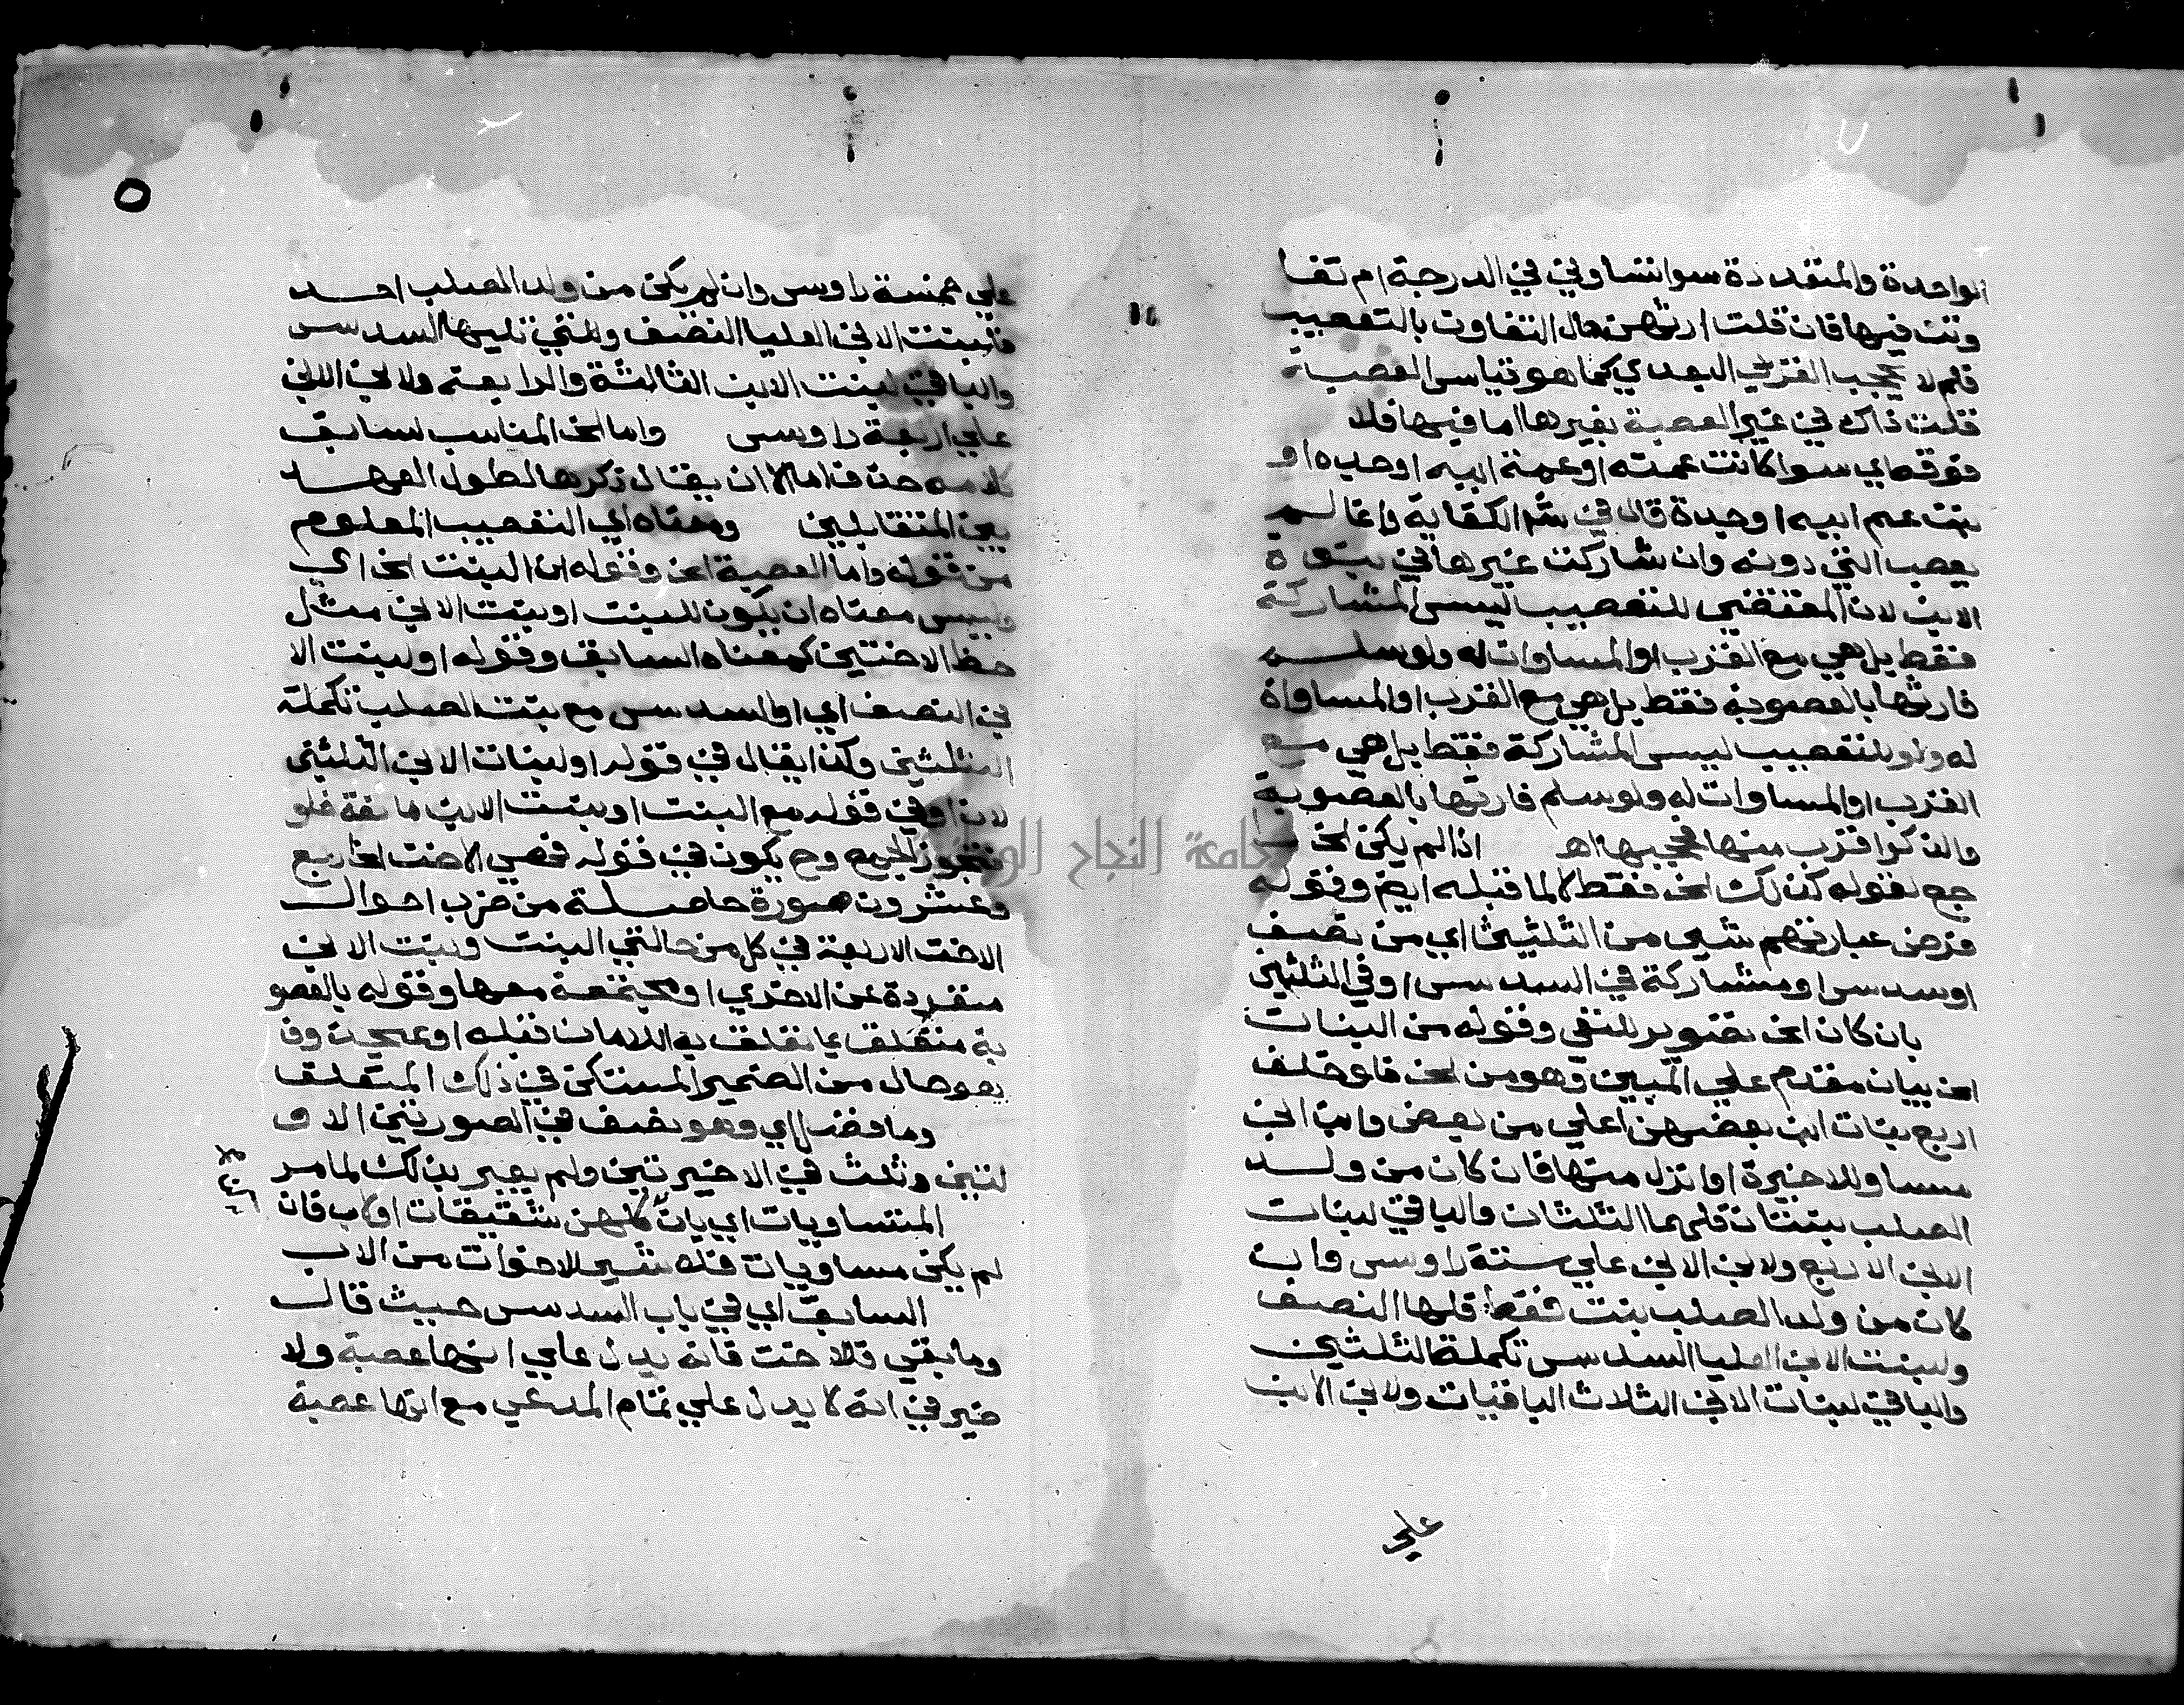 الواحدة والمتعددة سوا تساوين في الدرجة ام تفا
وتن فيها فان قلت ارثهن حال التفاوت بالتعصيب
فلم لا يحجب القربي البعدي كما هو قياس العصبة
قلت ذاك في غير العصبة بغيرها اما فيها فلا
فوقه اي سوا كانت عمته او عمة ابيه او جده او
بنت عم ابيه او جده قال في شرح الكفاية وانما لم
يعصب التي دونه وان شاركت غيرها في بنوة
الابن لان المقتضي للتعصيب ليس المشاركة
فقط بل هي مع القرب او المساوات له ولو سلم
فارثها بالعصوبة فقط بل هي مع القرب او المساواة
له ولو للتعصيب ليس المشاركة فقط بل هي مع
القرب او المساوات له ولو سلم فارثها بالعصوبة
والذكر اقرب منها فحجبها اه اذا لم يكن الخ
جع لقوله كذلك الخ فقط لا لما قبله ايض وقوله
فرض عبارتهم شي من الثلثين اي من نصف
او سدس او مشاركة في السدس او في الثلثين
بان كان الخ تصوير للنفي وقوله من البنات
الخ بيان مقدم علي المبين وهو من الخ فلو خلف
اربع بنات ابن بعضهن اعلي من بعض وابن ابن
مساو للاخيرة او انزل منها فان كان من ولد
الصلب بنتان فلهما الثلثان والباقي لبنات
الابن الاربع ولابن الابن علي ستة راوس وان
كان من ولد الصلب بنت فقط فلها النصف
ولبنت الابن العليا السدس تكملة الثلثين
والباقي لبنات الابن الثلاث الباقيات ولابن الابن
علي
٥
علي خمسة راوس وان لم يكن من ولد الصلب احد
فلبنت الابن العليا النصف وللتي تليها السدس
والباقي لبنت الابن الثالثة والرابعة ولابن الابن
علي اربعة راوس واما الخ المناسب لسابق
كلامه حذف اما الا ان يقال ذكرها لطول العهد
بين المتقابلين ومعناه اي التعصيب المعلوم
من قوله واما العصبة الخ وقوله ان البنت الخ اي
وليس معناه ان يكون للبنت او بنت الابن مثل
حظ الاختين كمعناه السابق وقوله او لبنت الا
بن النصف اي او السدس مع بنت الصلب تكملة
الثلثين وكذا يقال في قوله او لبنات الابن الثلثين
لان او في قوله مع البنت او بنت الابن مانعة خلو
فتجوز الجمع وح يكون في قوله فهي الاخت الخ اربع
وعشرون صورة حاصلة من ضرب احوال
الاخت الاربعة في كل من حالتي البنت وبنت الابن
منفردة عن الاخري او مجتمعة معها وقوله بالعصو
بة متعلق بما تعلق به اللامان قبله او بمحذوف
يهو حال من الضمير المستكن في ذلك المتعلق
وما فضل اي وهو نصف في الصورتين الاو
لتين وثلث في الاخيرتين ولم يعبر بذلك لما مر
المتساويات اي بان كلهن شقيقات او لاب فان
لم يكن مساويات فلا شي للاخوات من الاب
السابق اي في باب السدس حيث قال
وما بقي فللاخت فانه يدل علي انها عصبة ولا
ضير في انه لا يدل علي تمام المدعي مع انها عصبة